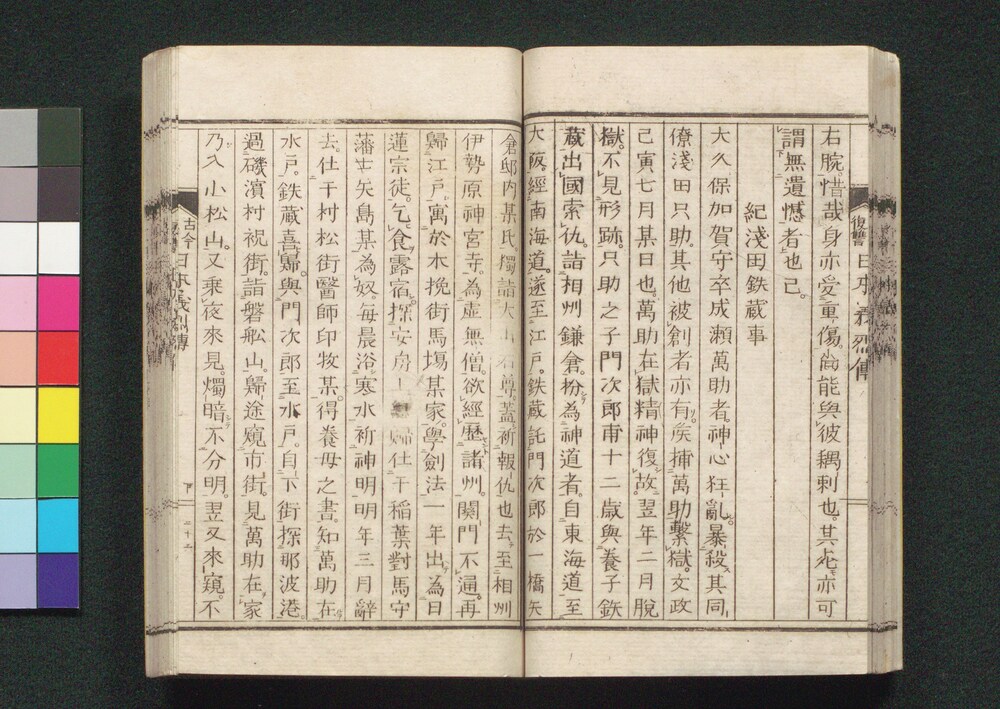 復讐
右腕惜哉身亦受重傷尚能與彼耦刺也其死亦可
謂無遺憾者也已
紀淺田鉄蔵事
大久保加賀守卒成瀬萬助者神心狂亂暴殺其同
僚淺田只助其他被創者亦有矣捕萬助繫獄文政
己寅七月某日也萬助在獄精神復故翌年二月脱
獄不見形跡只助之子門次郎甫十二歳與養子鉄
蔵出國索仇詣相州鎌倉扮為神道者自東海道至
大阪經南海道遂至江戸鉄蔵託門次郎於一橋矢
倉邸内某氏獨詣大山石尊蓋祈報仇也去至相州
伊勢原神宮寺為虚無僧欲經歴諸州關門不通再
歸江戸寓於木挽街馬塲某家學劍法一年出為日
蓮宗徒乞食露宿探安房上總歸仕于稲葉對馬守
藩士矢島某為奴毎晨浴寒水祈神明明年三月辭
去仕于村松街醫師印牧某得養母之書知萬助在
水戸鉄蔵喜歸與門次郎至水戸自下街探那波港
過磯濱村祝街詣磐舩山歸途窺市街見萬助在家
乃入小松山又乘夜來見燭暗不分明翌又來窺不
古今
下 二十二